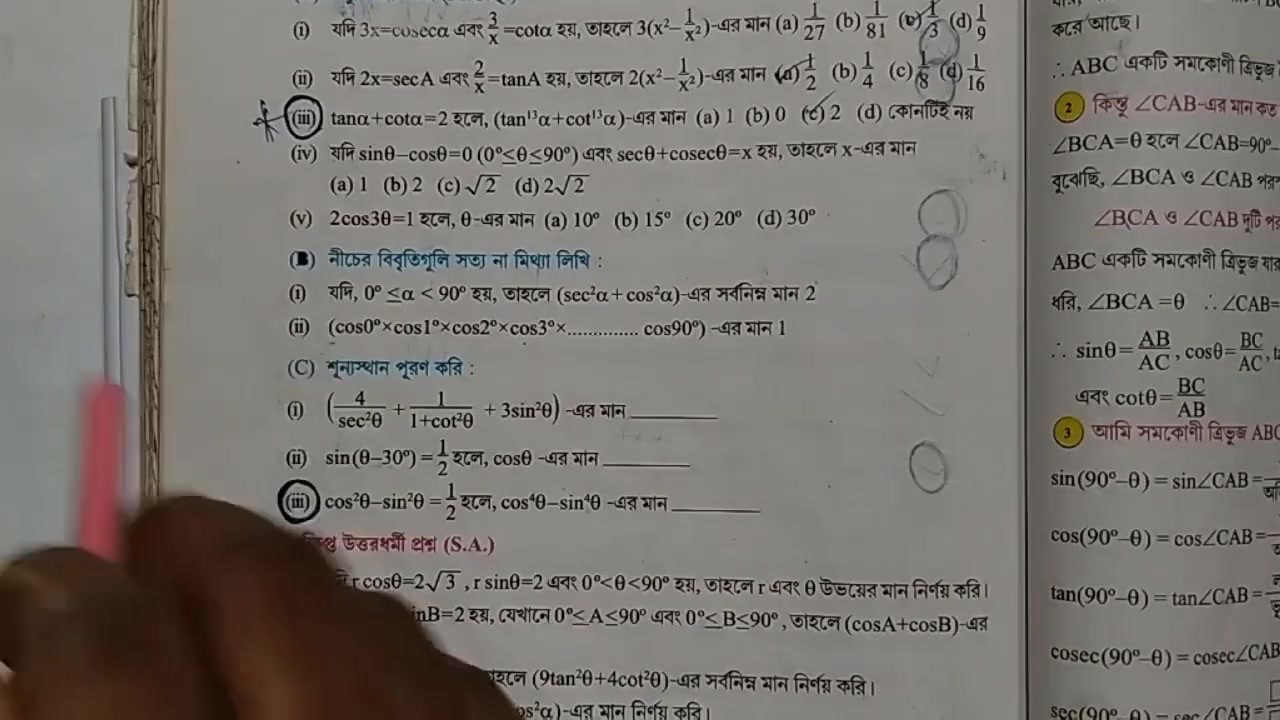 (i) যদি 3x=cosecα এবং 3/x=cotα হয়, তাহলে 3(x²−1/x²)-এর মান (a) 1/27 (b) 1/81 (c) 1/3 (d) 1/9
(ii) যদি 2x=secA এবং 2/x=tanA হয়, তাহলে 2(x²−1/x²)-এর মান (a) 1/2 (b) 1/4 (c) 1/8 (d) 1/16
(iii) tanα+cotα=2 হলে, (tan¹³α+cot¹³α)-এর মান (a) 1 (b) 0 (c) 2 (d) কোনটিই নয়
(iv) যদি sinθ−cosθ=0 (0°≤θ≤90°) এবং secθ+cosecθ=x হয়, তাহলে x-এর মান
(a) 1 (b) 2 (c) √2 (d) 2√2
(v) 2cos3θ=1 হলে, θ-এর মান (a) 10° (b) 15° (c) 20° (d) 30°
(B) নীচের বিবৃতিগুলি সত্য না মিথ্যা লিখি :
(i) যদি, 0° ≤α < 90° হয়, তাহলে (sec²α+cos²α)-এর সর্বনিম্ন মান 2
(ii) (cos0°×cos1°×cos2°×cos3°×.............. cos90°) -এর মান 1
(C) শূন্যস্থান পূরণ করি :
(i) (4/sec²θ + 1/1+cot²θ + 3sin²θ) -এর মান ________
(ii) sin(θ−30°) = 1/2 হলে, cosθ -এর মান ________
(iii) cos²θ−sin²θ = 1/2 হলে, cos⁴θ−sin⁴θ -এর মান ________
উত্তরধর্মী প্রশ্ন (S.A.)
r cosθ=2√3, r sinθ=2 এবং 0°<θ<90° হয়, তাহলে r এবং θ উভয়ের মান নির্ণয় করি।
inB=2 হয়, যেখানে 0°≤A≤90° এবং 0°≤B≤90°, তাহলে (cosA+cosB)-এর
(9tan²θ+4cot²θ)-এর সর্বনিম্ন মান নির্ণয় করি।
os²α)-এর মান নির্ণয় করি।
করে আছে।
∴ ABC একটি সমকোণী ত্রিভুজ
2 কিন্তু ∠CAB-এর মান কত
∠BCA=θ হলে ∠CAB=90°−
বুঝেছি, ∠BCA ও ∠CAB পর
∠BCA ও ∠CAB দুটি পর
ABC একটি সমকোণী ত্রিভুজ যার
ধরি, ∠BCA =θ ∴ ∠CAB=
∴ sinθ=AB/AC, cosθ=BC/AC, t
এবং cotθ=BC/AB
3 আমি সমকোণী ত্রিভুজ ABC
sin(90°−θ) = sin∠CAB=
cos(90°−θ) = cos∠CAB=
tan(90°−θ) = tan∠CAB=
cosec(90°−θ) = cosec∠CAB
sec(90°−θ) = sec∠CAB=